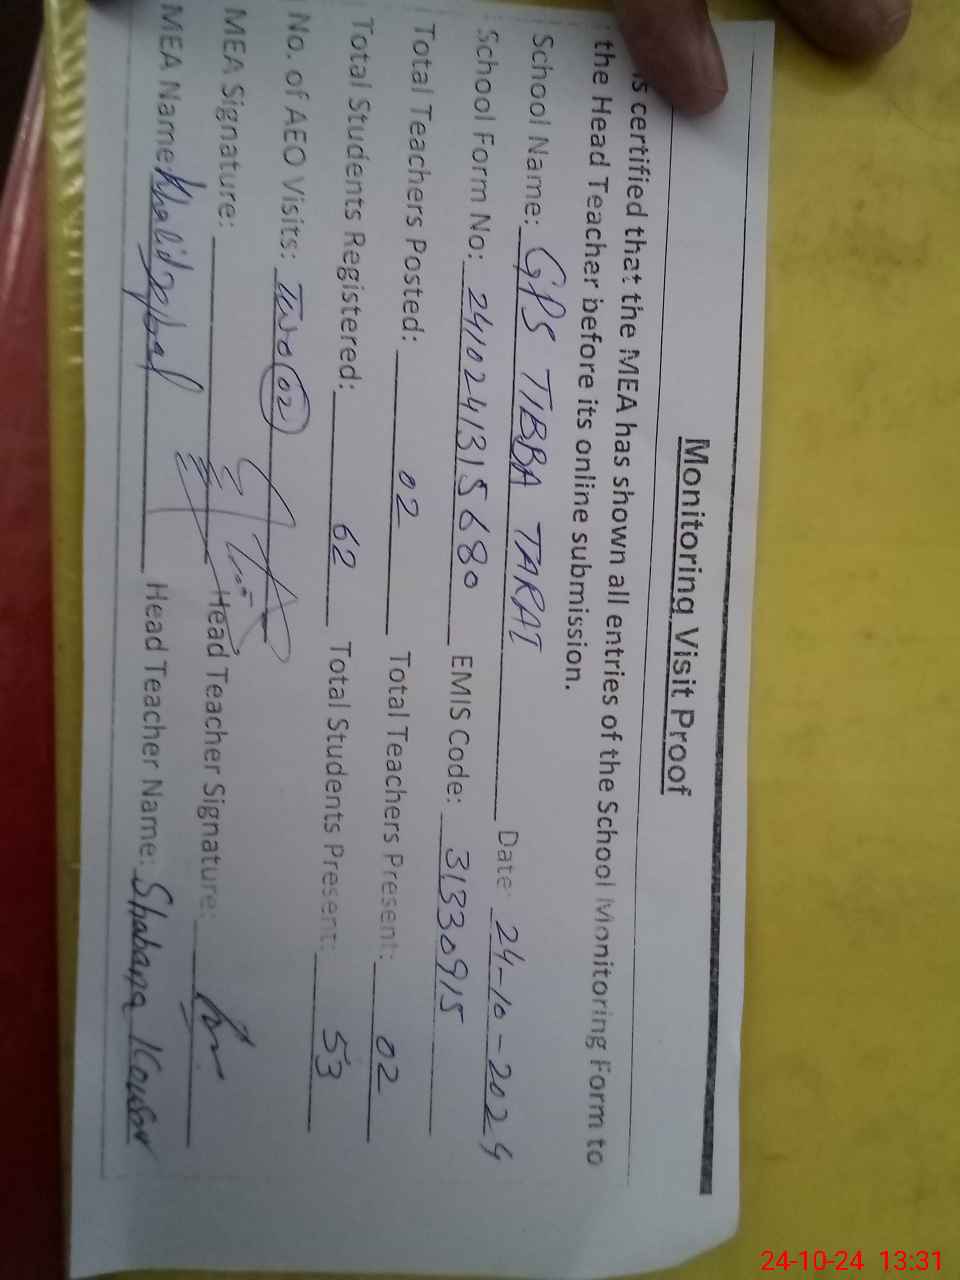 Monitoring Visit Proof
is certified that the MEA has shown all entries of the School Monitoring Form to
the Head Teachar before its online submission.
School Name: GPS TIBBA TARAI Date: 24-10-2024
School Form No: 2410241315680 EMIS Code: 31330915
Total Teachers Posted: 02 Total Teachers Present: 02
Total Students Registered: 62 Total Students Present: 53
No. of AEO Visits: Two (02)
MEA Signature: Head Teacher Signature:
MEA Name: Khalid Iqbal Head Teacher Name: Shabana Kousar
24-10-24 13:31